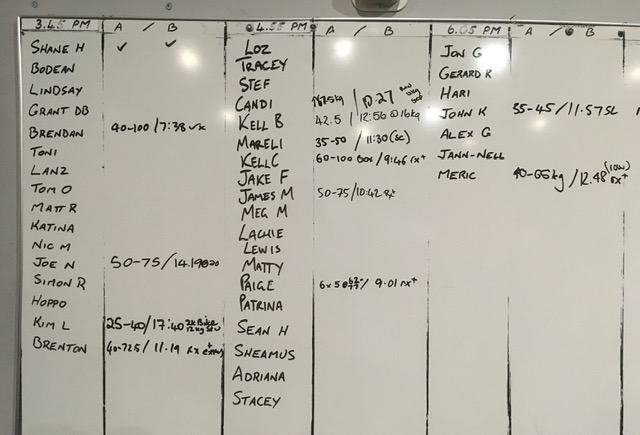 3.45 PM A / B
SHANE H ✓ ✓
BODEAN
LINDSAY
GRANT DB
BRENDAN 40-100 / 7:38 rx
TONI
LANZ
TOM O
MATT R
KATINA
NIC M
JOE N 50-75 / 14.19
SIMON R
HOPPO
KIM L 25-40 / 17:40 2k Bike 12kg
BRENTON 40-72.5 / 11.19 rx +
4.55 PM A / B
LOZ
TRACEY
STEF
CANDI / 10.27
KELL B 42.5 / 12:56 @ 16kg
MARELI 35-50 / 11:30 (SC)
KELL C 60-100 BOX / 9:46 rx+
JAKE F
JAMES M 50-75 / 10:42 Rx
MEG M
LACHIE
LEWIS
MATTY
PAIGE 6x50 / 9.01 rx+
PATRINA
SEAN H
SHEAMUS
ADRIANA
STACEY
6.05 PM A / B
JON G
GERARD R
HARI
JOHN K 35-45 / 11.57 SC
ALEX G
JANN-NELL
MERIC 40-65kg / 12.48 (ROW) rx+